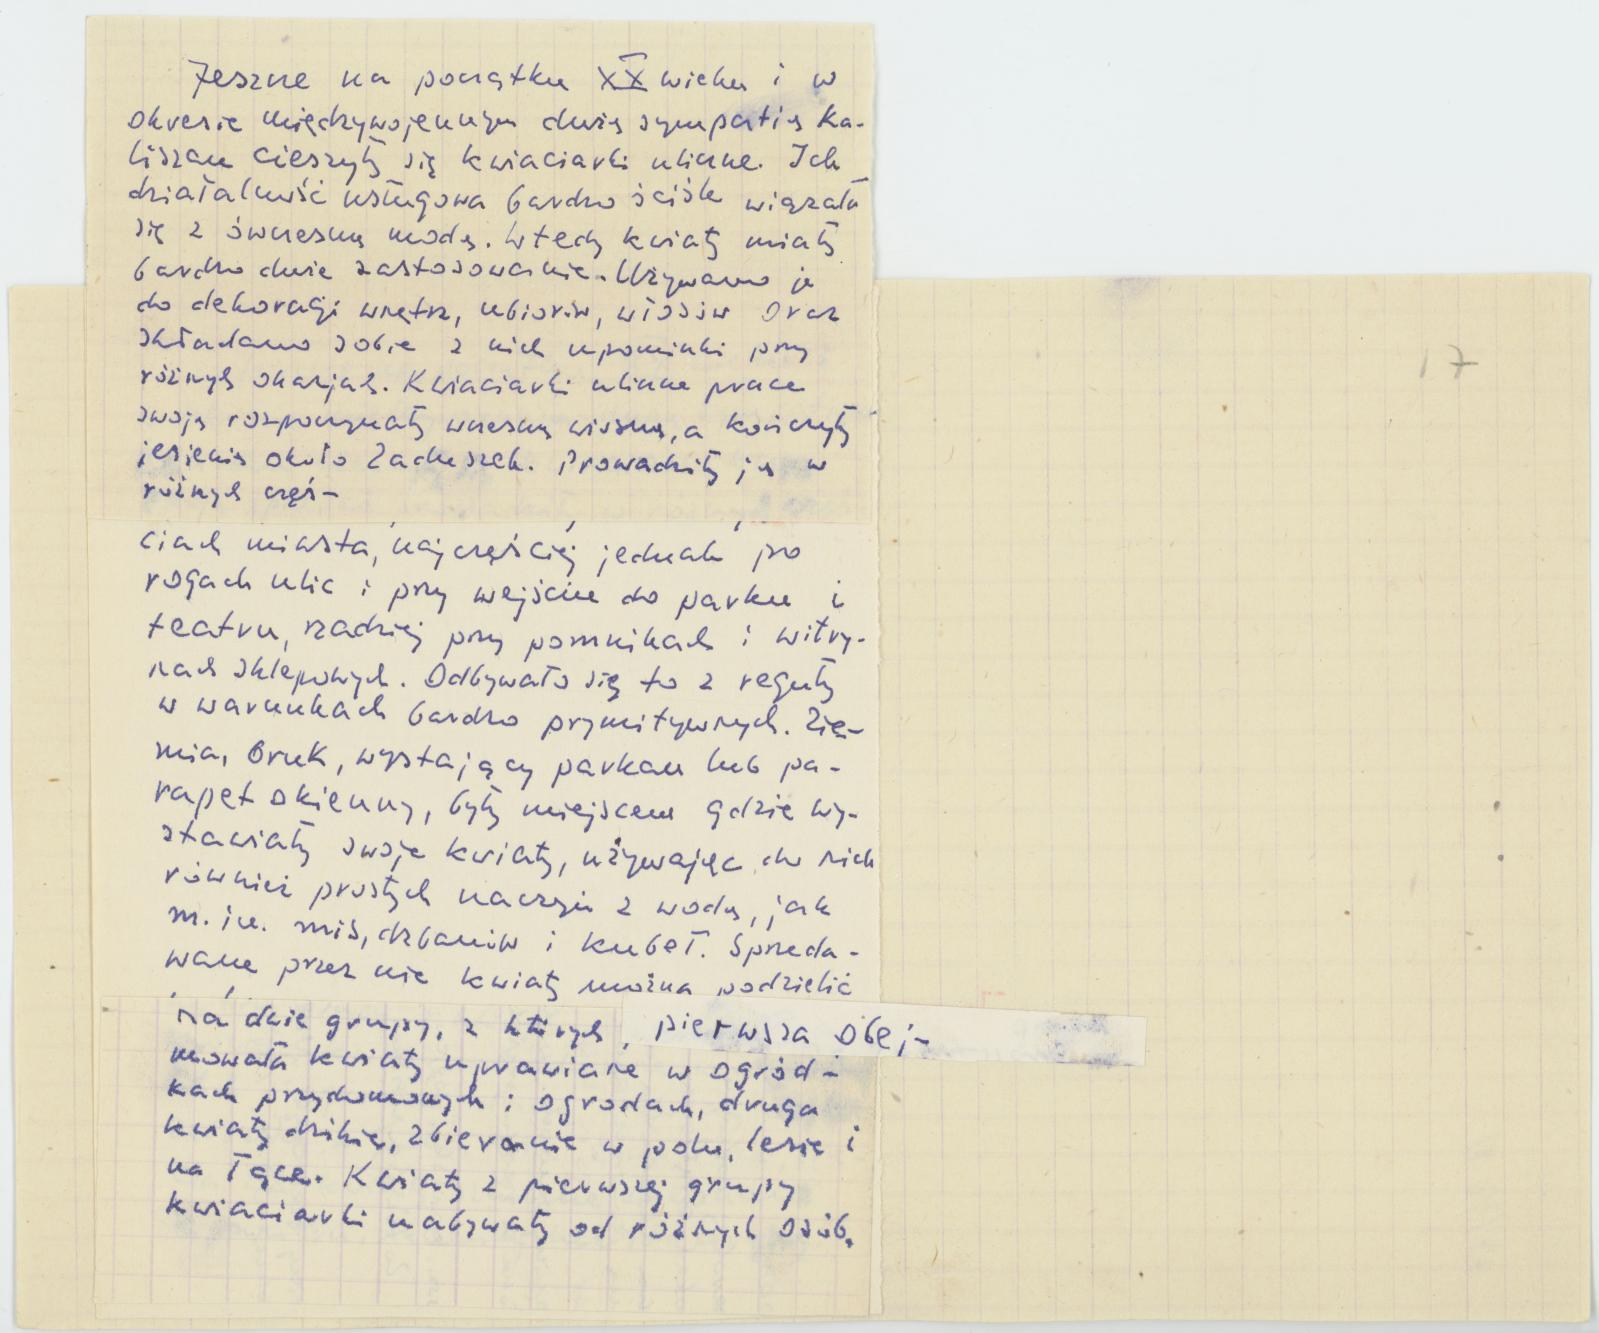 Jeszcze na początku XX wieku i w
okresie międzywojennym dużą sympatią Ka-
liszan cieszyły się kwiaciarki uliczne. Ich
działalność usługowa bardzo ściśle wiązała
się z ówczesną modą. Wtedy kwiaty miały
bardzo duże zastosowanie. Używano je
do dekoracji wnętrz, ubiorów, włosów oraz
składano sobie z nich upominki przy
różnych okazjach. Kwiaciarki uliczne prace
swoją rozpoczynały wczesną wiosną, a kończyły
jesienią około Zaduszek. Prowadziły ją w
różnych częś-
ciach miasta, najczęściej jednak po
rogach ulic i przy wejściu do parku i
teatru, rzadziej przy pomnikach i witry-
nach sklepowych. Odbywało się to z reguły
w warunkach bardzo prymitywnych. Zie-
mia, bruk, wystający parkan lub pa-
rapet okienny, były miejscem gdzie wy-
stawiały swoje kwiaty, używając do nich
również prostych naczyń z wodą, jak
m. in. mis, dzbanów i kubeł. Sprzeda-
wane przez nie kwiaty można podzielić
na dwie grupy, z których, pierwsza obej-
mowała kwiaty uprawiane w ogród-
kach przydomowych i ogrodach, druga
kwiaty dzikie, zbieranie w polu, lesie i
na łące. Kwiaty z pierwszej grupy
kwiaciarki nabywały od różnych osób.
17